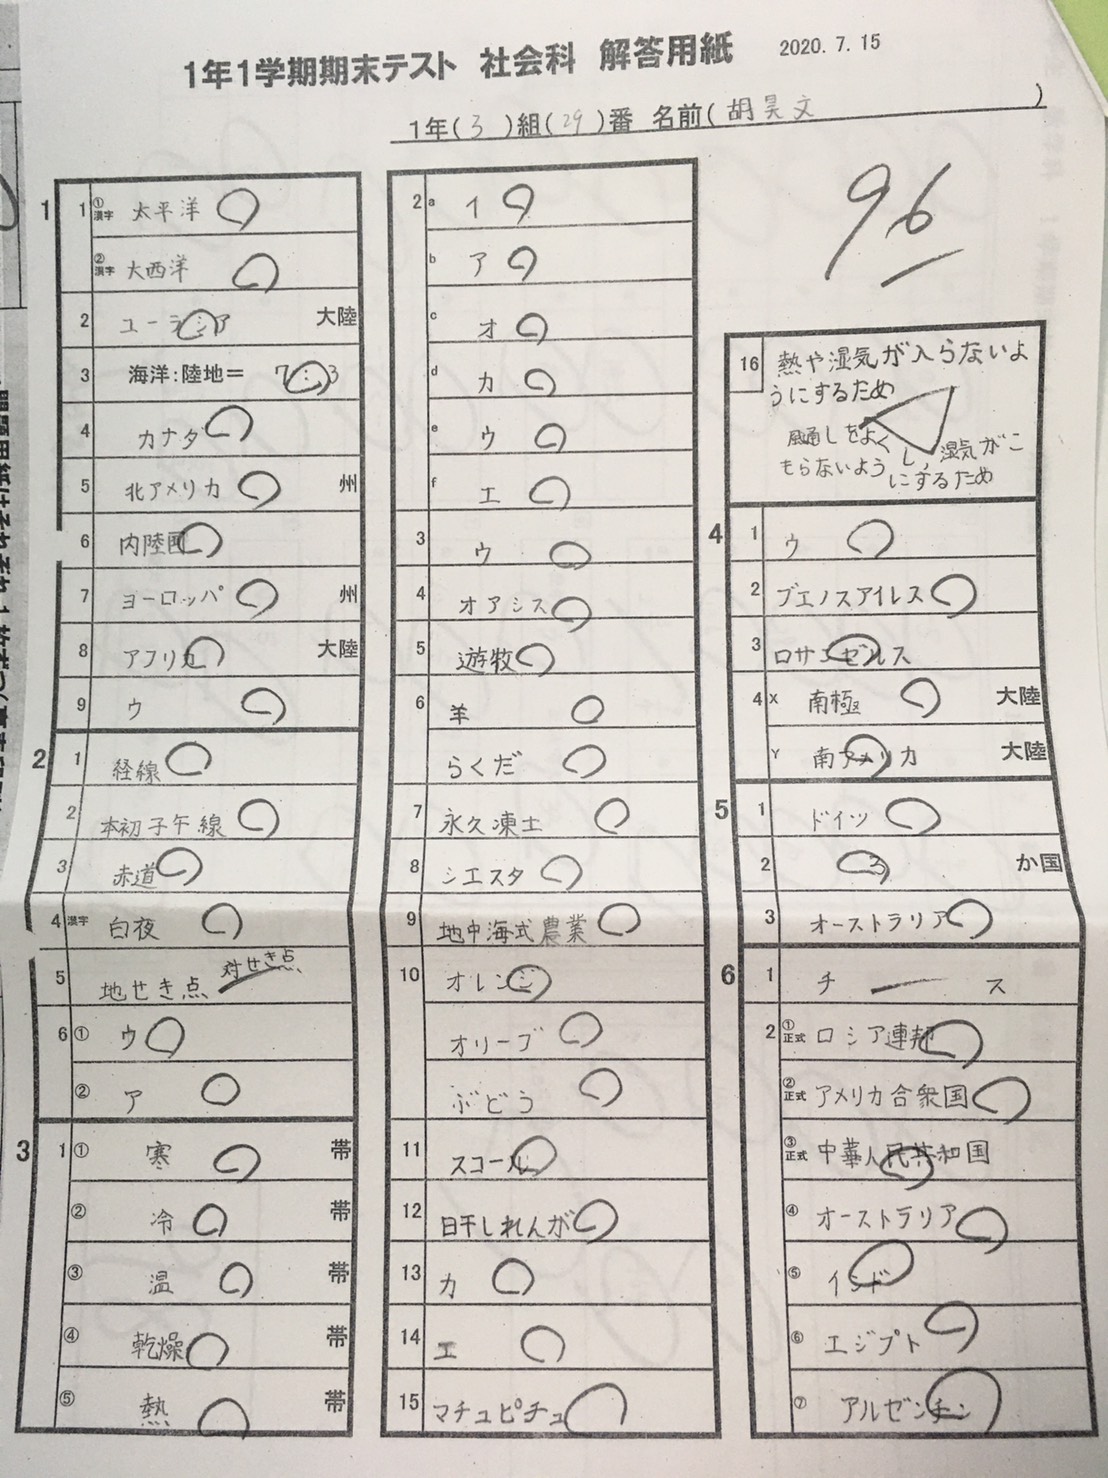 1年1学期期末テスト 社会科 解答用紙 2020.7.15
1年(3)組(29)番 名前(胡昊文)
96
1
1 ①漢字 太平洋
②漢字 大西洋
2 ユーラシア 大陸
3 海洋:陸地= 7:3
4 カナダ
5 北アメリカ 州
6 内陸国
7 ヨーロッパ 州
8 アフリカ 大陸
9 ウ
2
1 経線
2 本初子午線
3 赤道
4 漢字 白夜
5 地せき点 対せき点
6 ① ウ
② ア
3
1 ① 寒 帯
② 冷 帯
③ 温 帯
④ 乾燥 帯
⑤ 熱 帯
2 a イ
b ア
c オ
d カ
e ウ
f エ
3 ウ
4 オアシス
5 遊牧
6 羊
らくだ
7 永久凍土
8 シエスタ
9 地中海式農業
10 オレンジ
オリーブ
ぶどう
11 スコール
12 日干しれんが
13 カ
14 エ
15 マチュピチュ
16 熱や湿気が入らないよ
うにするため
風通しをよくし、湿気がこ
もらないようにするため
4
1 ウ
2 ブエノスアイレス
3 ロサンゼルス
4 X 南極 大陸
Y 南アメリカ 大陸
5
1 ドイツ
2 3 か国
3 オーストラリア
6
1 チ ー ス
2 ①正式 ロシア連邦
②正式 アメリカ合衆国
③正式 中華人民共和国
④ オーストラリア
⑤ インド
⑥ エジプト
⑦ アルゼンチン